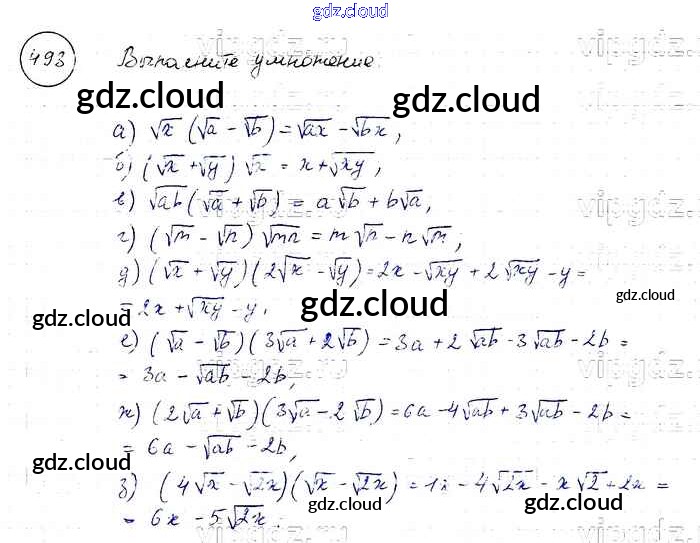 gdz.cloud
493 Выполните умножение:
vipgdz.ru
gdz.cloud gdz.cloud
а) √x (√a − √b) = √ax − √bx,
б) (√x + √y) √x = x + √xy,
в) √ab (√a + √b) = a√b + b√a,
vipgdz.
г) (√m − √n) √mn = m√n − n√m,
д) (√x + √y)(2√x − √y) = 2x − √xy + 2√xy − y =
= 2x + √xy − y,
gdz.cloud gdz.cloud gdz.cloud
е) (√a − √b)(3√a + 2√b) = 3a + 2√ab − 3√ab − 2b =
= 3a − √ab − 2b,
ж) (2√a + √b)(3√a − 2√b) = 6a − 4√ab + 3√ab − 2b =
= 6a − √ab − 2b,
gdz.cloud gdz.cloud
з) (4√x − √2x)(√x − √2x) = − 4√2x − x√2 + 2x =
= 6x − 5√2x.
gdz.cloud gdz.cloud